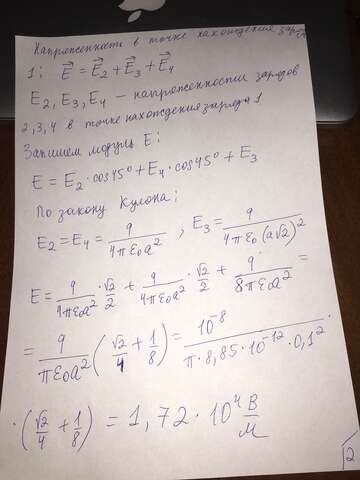 Напряженность в точке нахождения заряда
1: E⃗ = E⃗₂ + E⃗₃ + E⃗₄
E₂, E₃, E₄ – напряженности зарядов
2, 3, 4 в точке нахождения заряда 1
Запишем модуль E:
E = E₂ · cos45° + E₄ · cos45° + E₃
По закону Кулона:
E₂ = E₄ = q/(4πε₀a²) , E₃ = q/(4πε₀(a√2)²)
E = q/(4πε₀a²) · √2/2 + q/(4πε₀a²) · √2/2 + q/(8πε₀a²) =
= q/(πε₀a²) (√2/4 + 1/8) = 10⁻⁸/(π · 8,85 · 10⁻¹² · 0,1²) ·
· (√2/4 + 1/8) = 1,72 · 10⁴ В/м
2